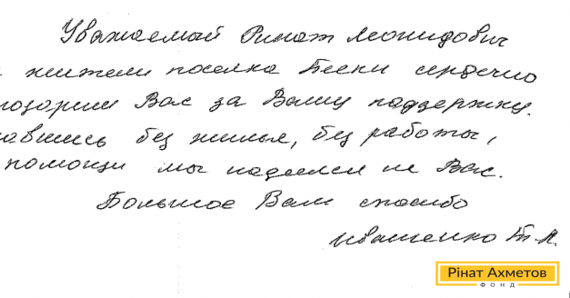 Уважаемый Ринат Леонидович
жители поселка Пески сердечно
годарим Вас за Вашу поддержку.
тавшись без жилья, без работы,
помощи мы надеемся не Вас.
Большое Вам спасибо
Иващенко Т.А.
Рінат Ахметов
ФОНД